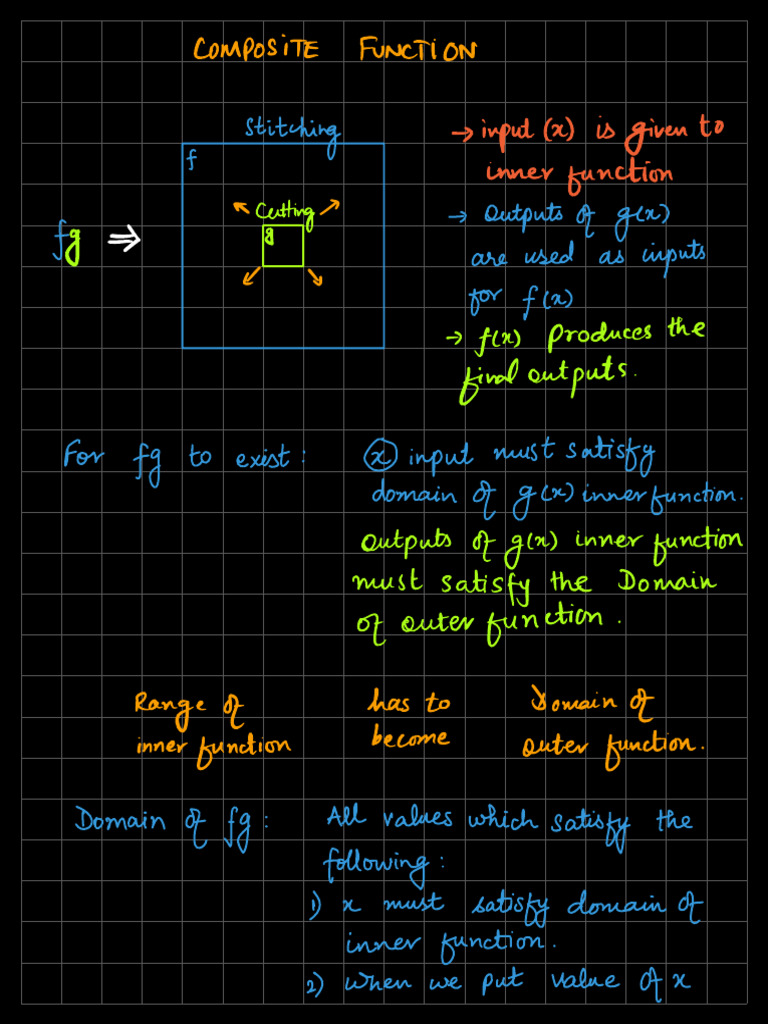 COMPOSITE FUNCTION
Stitching
f
Cutting
g
fg ⇒
→ input (x) is given to
inner function
→ Outputs of g(x)
are used as inputs
for f(x)
→ f(x) produces the
final outputs.
For fg to exist: x input must satisfy
domain of g(x) inner function.
Outputs of g(x) inner function
must satisfy the Domain
of outer function.
Range of has to Domain of
inner function become outer function.
Domain of fg: All values which satisfy the
following:
1) x must satisfy domain of
inner function.
2) when we put value of x